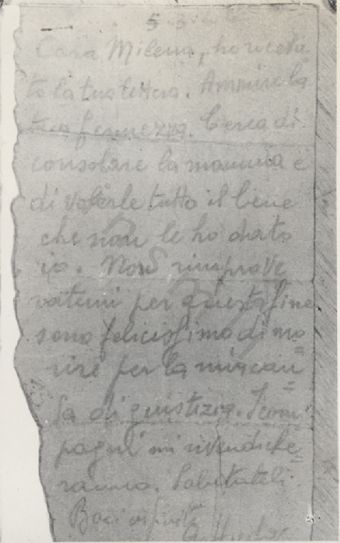 5-3
Cara Milena, ho ricevu
to la tua lettera. Ammiro la
tua fermezza. Cerca di
consolare la mamma e
di volerle tutto il bene
che non le ho dato
io. Non rimprove
ratemi per questa fine
sono felicissimo di mo
rire per la mia cau=
sa di giustizia. I com
pagni mi vendiche=
ranno. Salutateli.
Baci